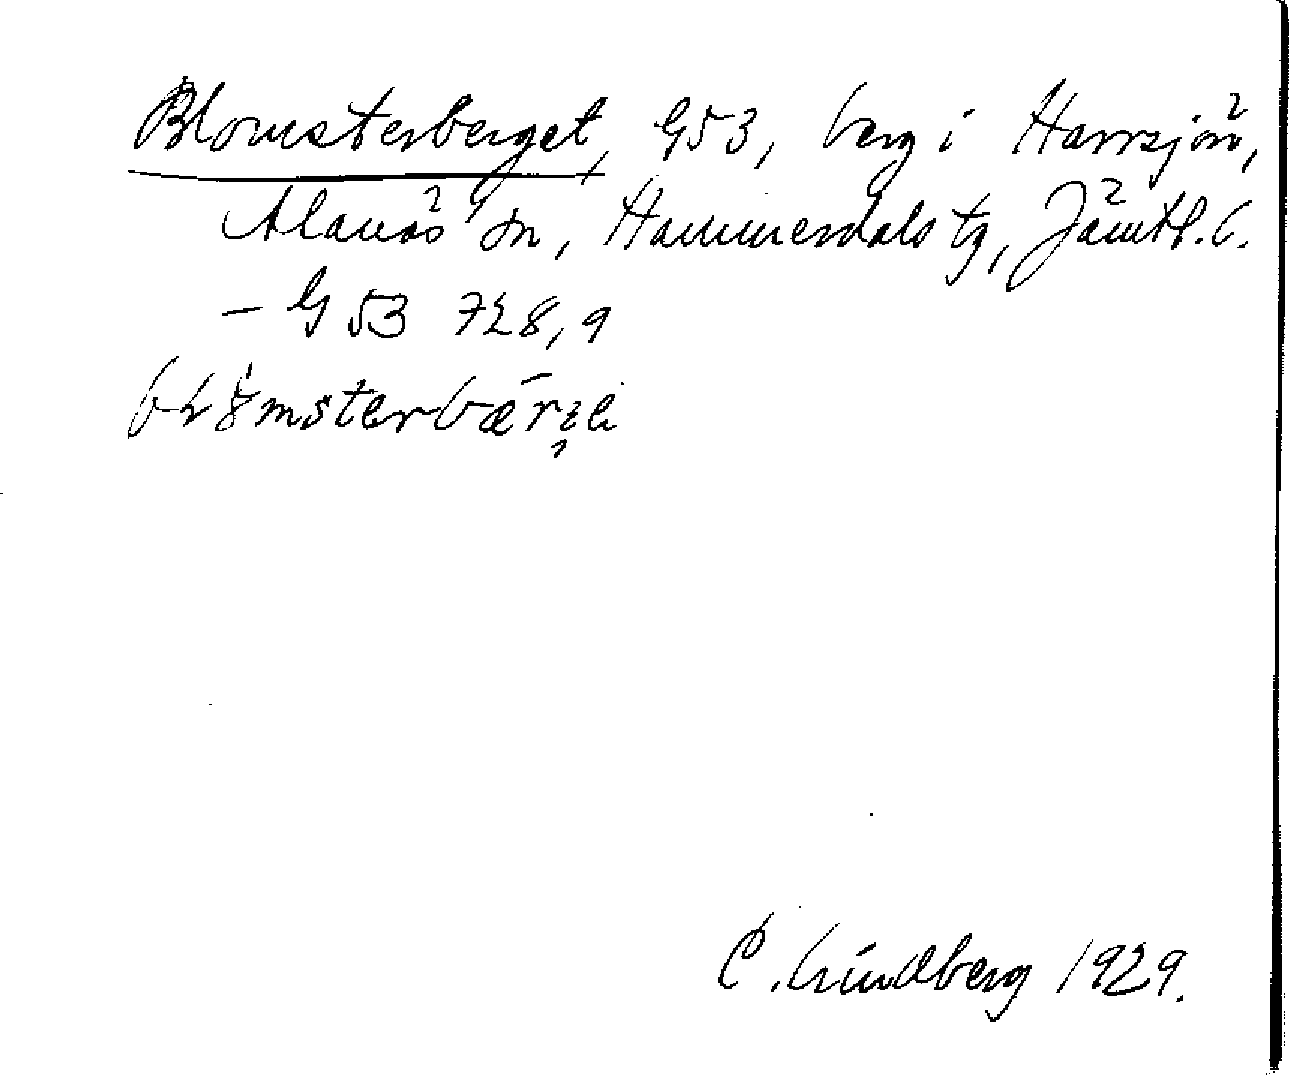 Blomsterberget, G53, berg i Harrsjön,
Alanäs sn, Hammerdals tg, Jämtl. l.
– G 53 728,9
C. Lindberg 1929.